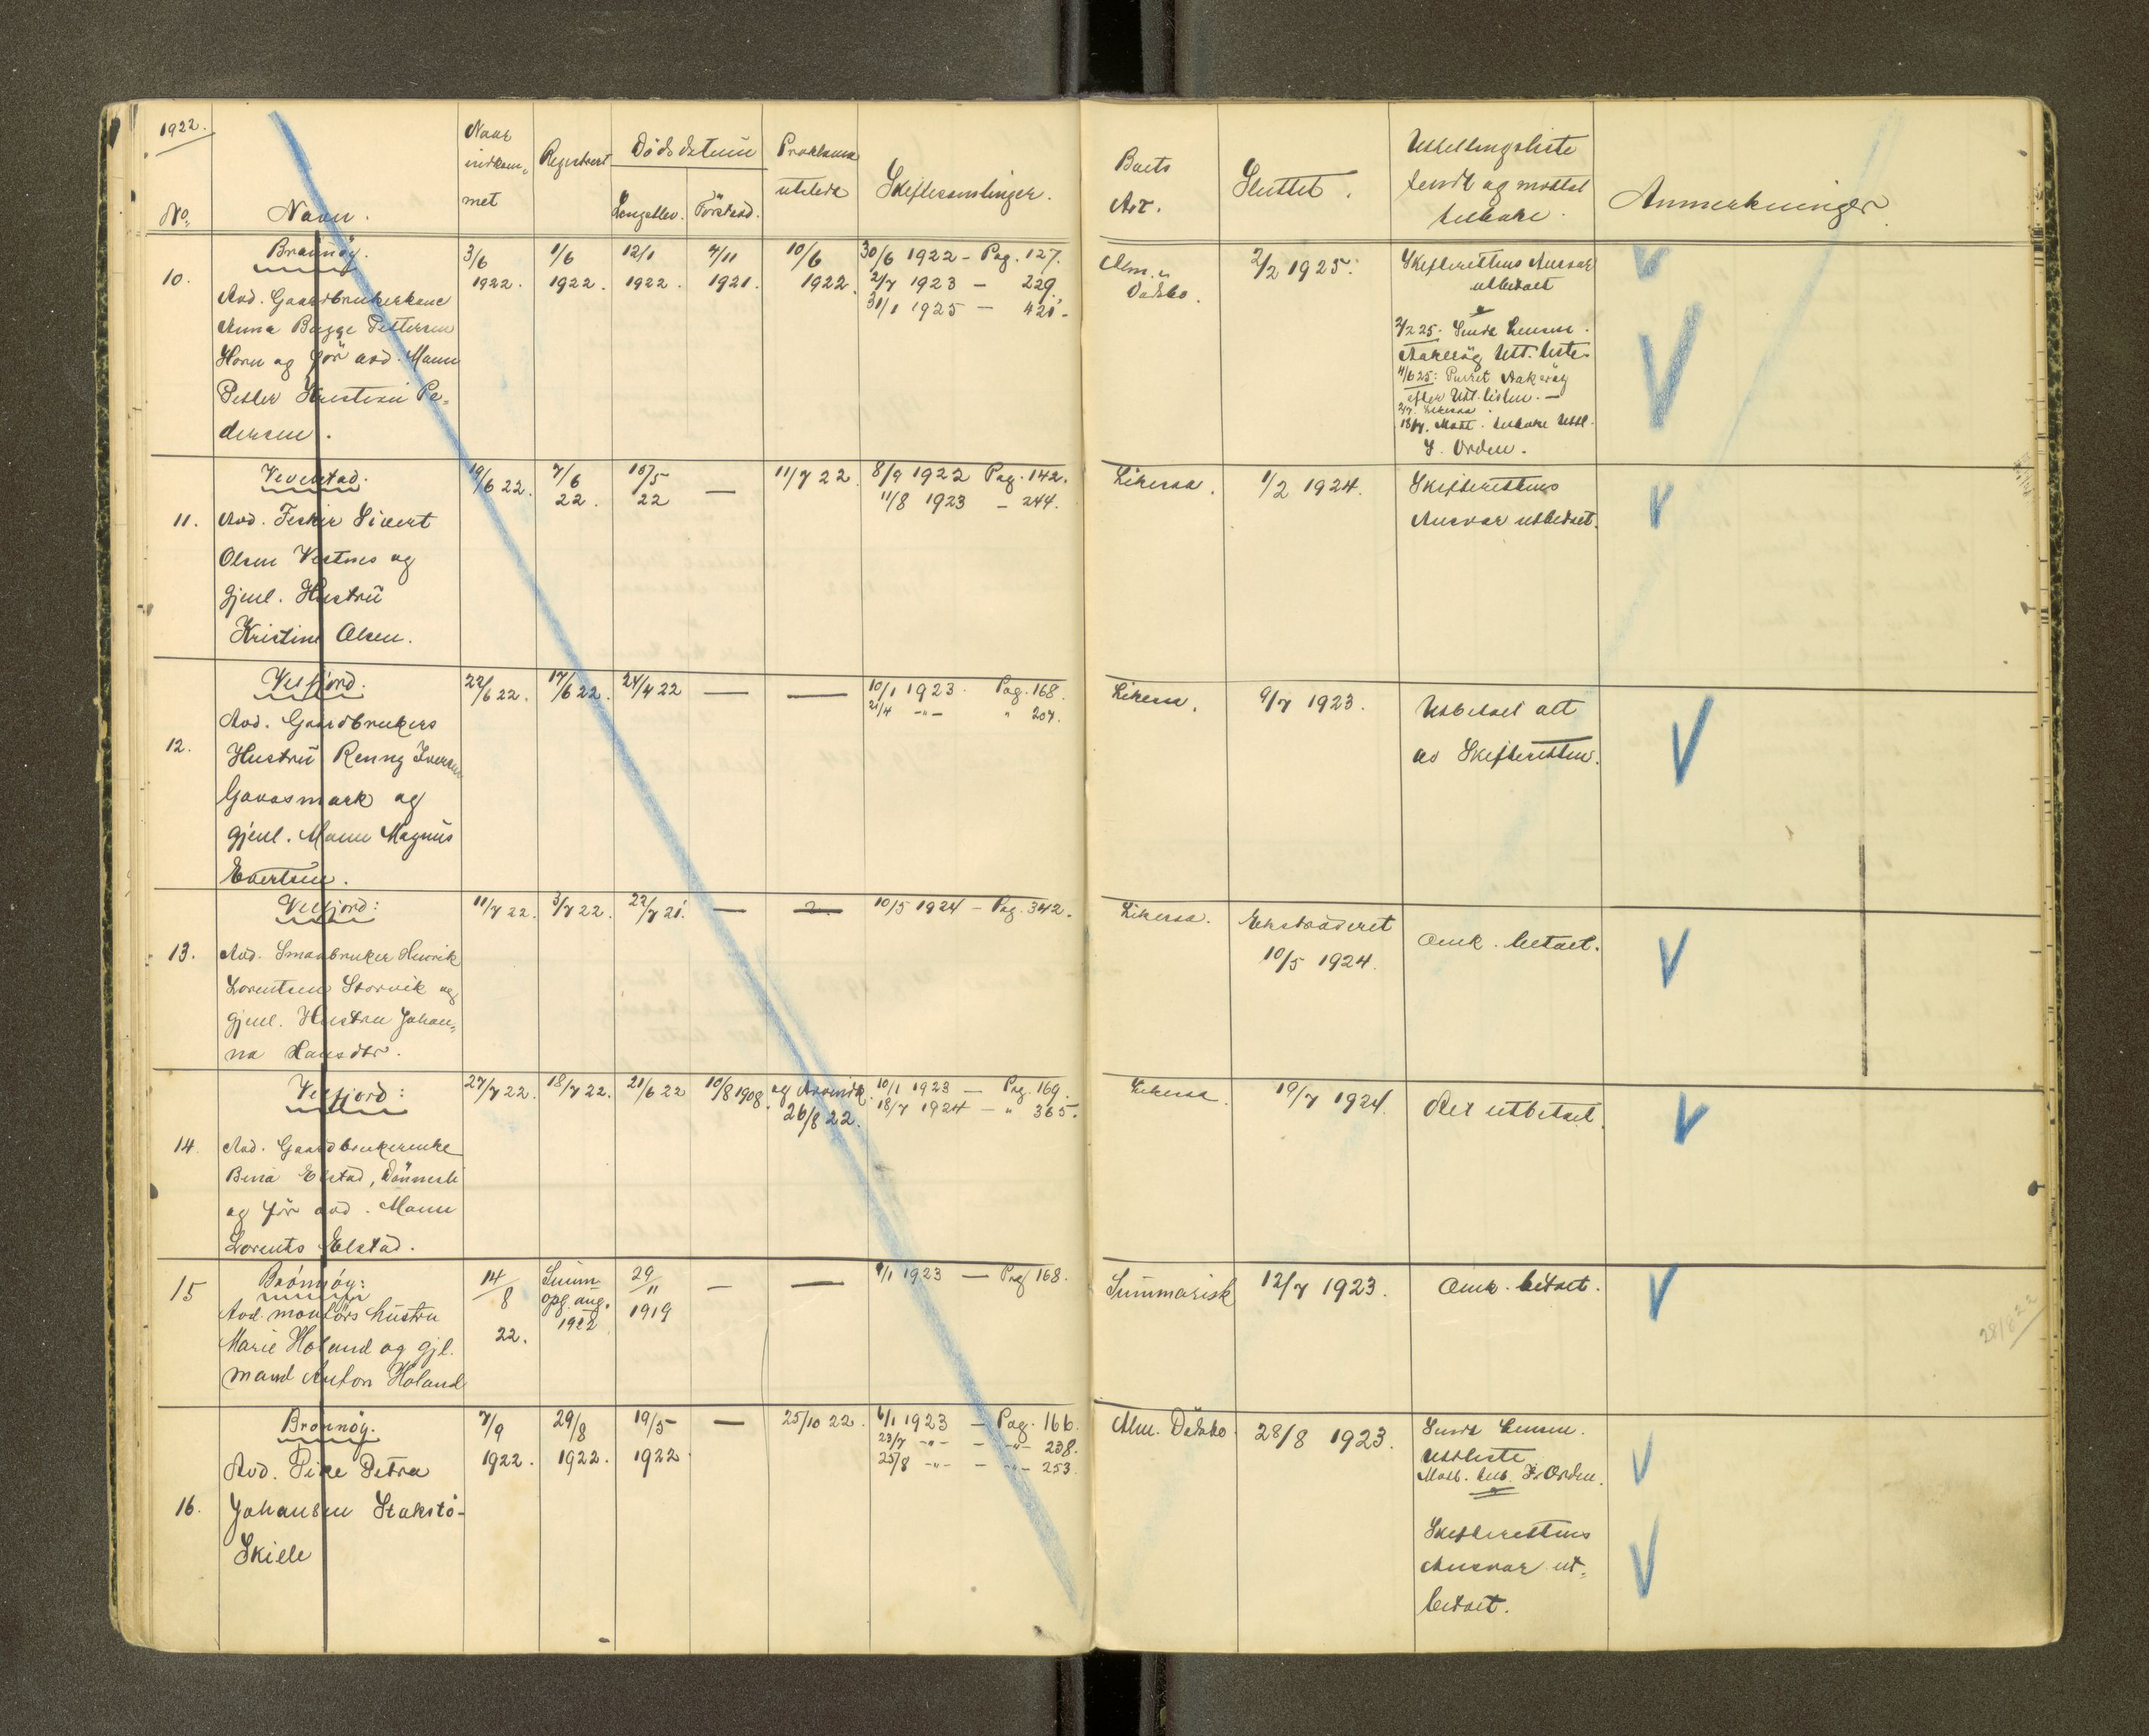 1922.
No.
Navn.
Naar
indkom-
met
Registrert
Dödsdatum
Lengstlev.
Förstavd.
Proklama
utstedt
Skiftesamlinger.
Boets
Art.
Sluttet.
Utlegningsliste
sendt og mottat
tilbake.
Anmerkninger
10.
Brønnöy.
Avd. Gaardbrukerkone
Anna Bugge Pettersen
Horn og før avd. Mann
Petter Kristian Pe-
dersen.
3/6
1922.
1/6
1922.
12/1
1922.
7/11
1921.
10/6
1922.
30/6 1922 – Pag. 127.
2/7 1923 – 229.
31/1 1925 – 421.
Alm.
Dødsbo.
2/2 1925.
Skifterettens Ansvar
utbetalt
2/2 25. Sendt Lensm.
Aakerøy Utl. liste.
4/6 25: Purret Aakerøy
efter Utl. listen. –
2/7. Likesaa.
18/7. Mott. tilbake Utl.
I Orden.
11.
Vevelstad.
Avd. Fisker Sivert
Olsen Vestnes og
gjenl. Hustru
Kristine Olsen.
19/6 22.
7/6
22.
15/5
22
—
11/7 22.
8/9 1922 Pag. 142.
11/8 1923 – 244.
Likesaa.
1/2 1924.
Skifterettens
Ansvar utbetalt.
12.
Velfjord.
Avd. Gaardbrukers
Hustru Renny Iversen
Gaasmark og
gjenl. Mann Magnus
Evertsen.
22/6 22.
17/6 22.
24/4 22
—
—
10/1 1923. Pag. 168.
21/4 -"- " 207.
Likesaa.
9/7 1923.
Utbetalt alt
av Skifteretten.
13.
Velfjord:
Avd. Smaabruker Henrik
Lorentsen Storvik og
gjenl. Hustru Johan-
na Hansdtr.
11/7 22.
3/7 22.
22/7 21.
—
—
10/5 1924 – Pag. 342.
Likesaa.
Ekstraderet
10/5 1924.
Omk. betalt.
14.
Velfjord:
Avd. Gaardbrukerenke
Bina Elstad, Dønnesli
og før avd. Mann
Lorents Elstad.
27/7 22.
18/7 22.
21/6 22
10/8 1908.
26/8 22.
10/1 1923 – Pag. 169.
18/7 1924 – " 365.
Likesaa.
19/7 1924.
Alt utbetalt.
15
Brönnöy:
Avd. montörs hustru
Marie Holand og gjl.
mand Anton Holand
14/8
22.
Summ.
opg. aug.
1922
29/11
1919
—
—
9/1 1923 – Pag 168.
Summarisk
12/7 1923.
Omk. betalt.
28/8 22
16.
Brønnöy.
Avd. Pike Petra
Johansen Stakstö-
Skille
7/9
1922.
29/8
1922.
19/5
1922.
—
25/10 22.
6/1 1923 – Pag. 166.
23/7 -"- – -"- 238.
25/8 -"- – -"- 253.
Alm. Dødsbo.
28/8 1923.
Sendt Lensm.
Utl.liste
Mott. tilb. I Orden.
Skifterettens
Ansvar ut-
betalt.